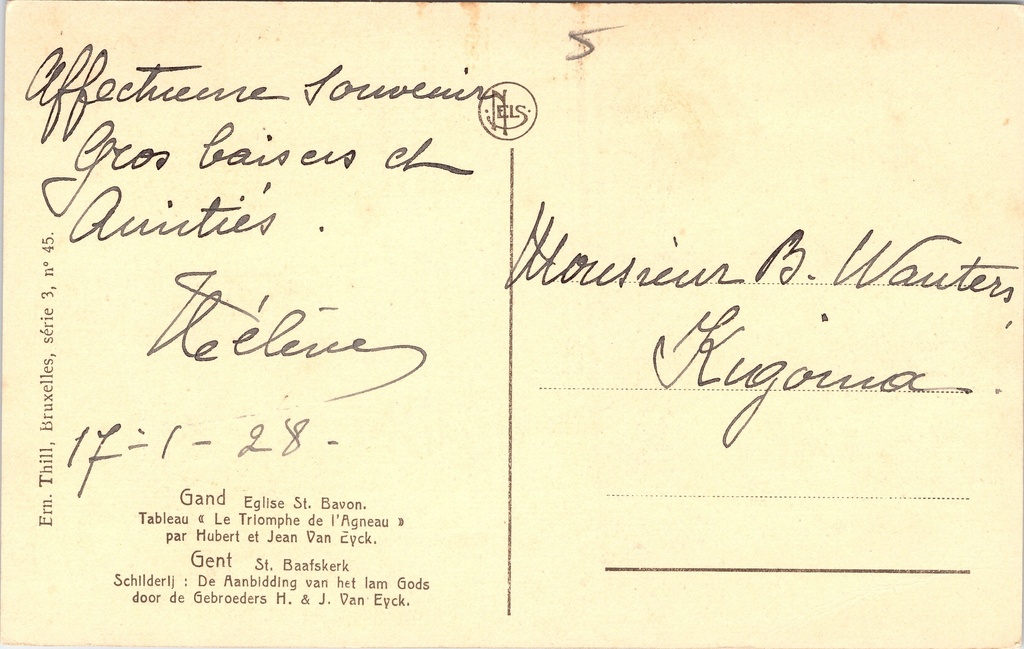 5
Affectueuse souvenir
Gros baisers et
Amitiés.
Hélène
17-1-28-
NELS
Monsieur B. Wauters
Kigoma.
Ern. Thill, Bruxelles, série 3, nº 45.
Gand Eglise St. Bavon.
Tableau « Le Triomphe de l'Agneau »
par Hubert et Jean Van Eyck.
Gent St. Baafskerk
Schilderij : De Aanbidding van het lam Gods
door de Gebroeders H. & J. Van Eyck.